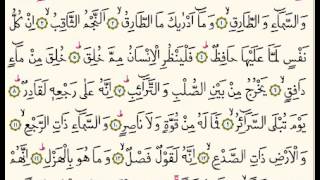 وَالسَّمَاءِ وَالطَّارِقِ ۝١ وَمَا أَدْرَىٰكَ مَا الطَّارِقُ ۝٢ النَّجْمُ الثَّاقِبُ ۝٣ إِنْ كُلُّ
نَفْسٍ لَمَّا عَلَيْهَا حَافِظٌ ۝٤ فَلْيَنْظُرِ الْإِنْسَانُ مِمَّ خُلِقَ ۝٥ خُلِقَ مِنْ مَاءٍ
دَافِقٍ ۝٦ يَخْرُجُ مِنْ بَيْنِ الصُّلْبِ وَالتَّرَائِبِ ۝٧ إِنَّهُ عَلَىٰ رَجْعِهِ لَقَادِرٌ ۝٨
يَوْمَ تُبْلَى السَّرَائِرُ ۝٩ فَمَا لَهُ مِنْ قُوَّةٍ وَلَا نَاصِرٍ ۝١٠ وَالسَّمَاءِ ذَاتِ الرَّجْعِ ۝١١
وَالْأَرْضِ ذَاتِ الصَّدْعِ ۝١٢ إِنَّهُ لَقَوْلٌ فَصْلٌ ۝١٣ وَمَا هُوَ بِالْهَزْلِ ۝١٤ إِنَّهُمْ